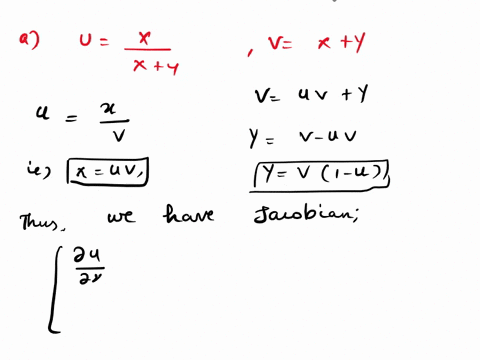 a) u = x / (x + y) , v = x + y
u = x / v v = uv + y
y = v - uv
ie) x = uv, y = v (1 - u)
Thus, we have Jacobian;
[ ∂u / ∂x